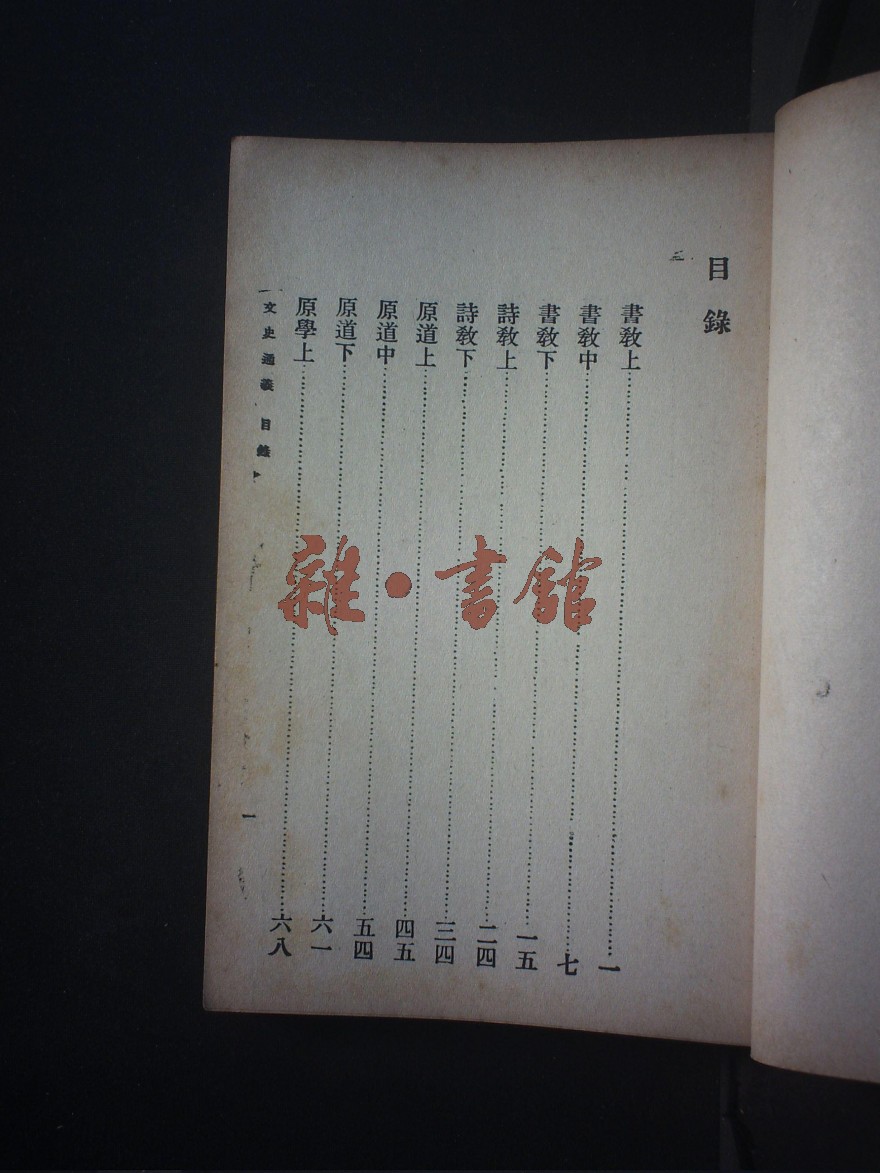 目錄
書敎上 一
書敎中 七
書敎下 一五
詩敎上 二四
詩敎下 三四
原道上 四五
原道中 五四
原道下 六一
原學上 六八
文史通義 目錄 一
雜·書館